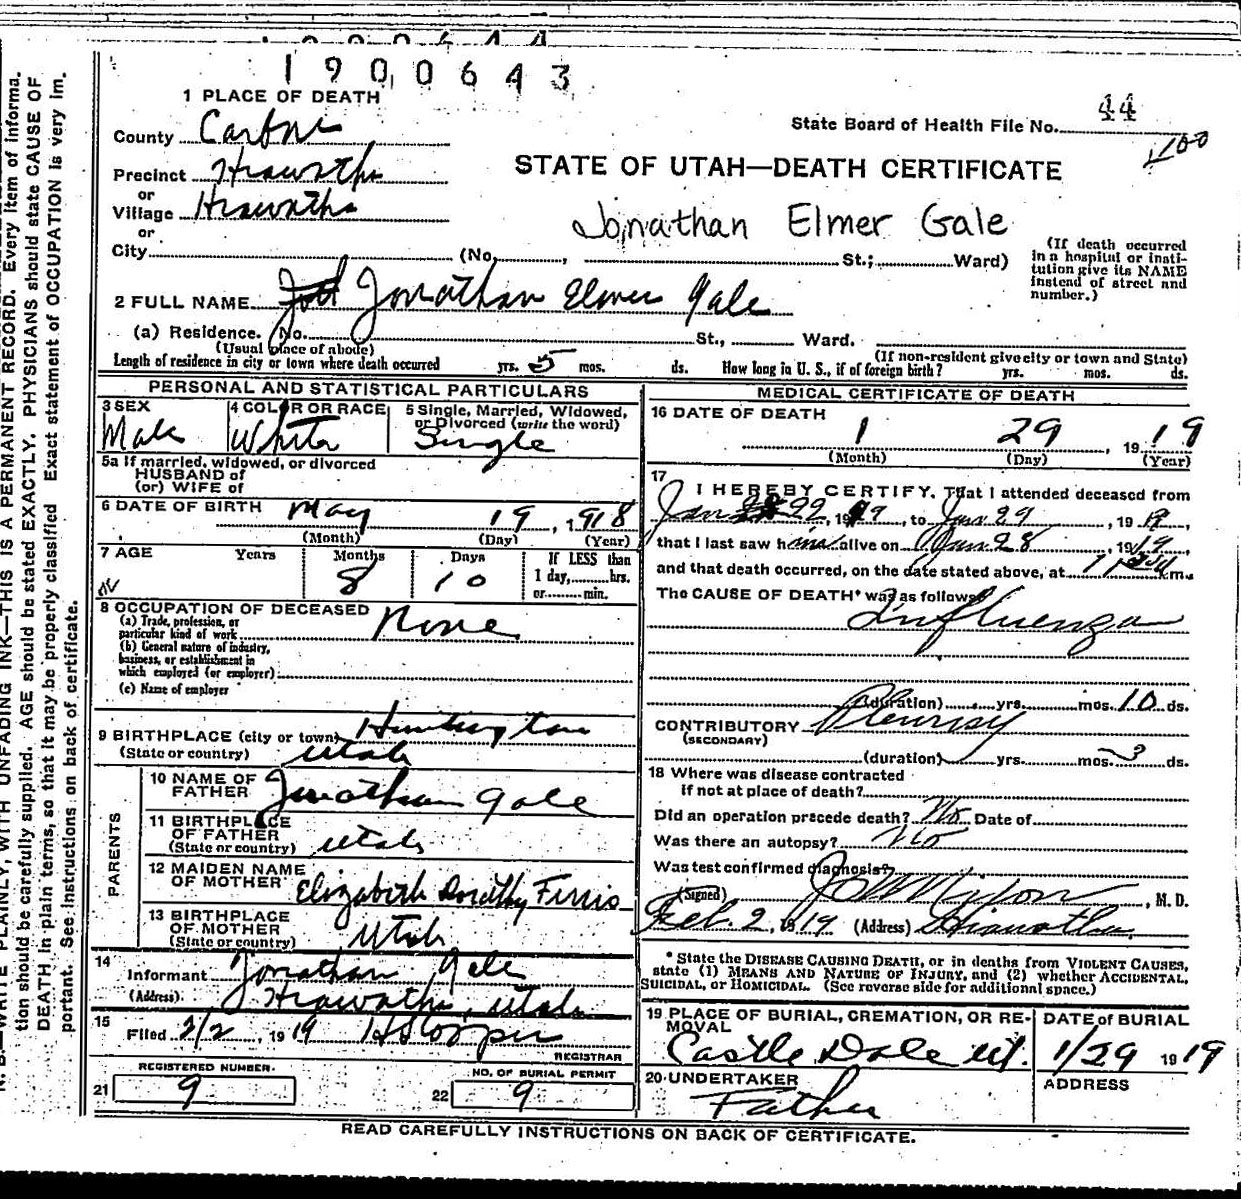 1900643
1 PLACE OF DEATH
County Carbon
State Board of Health File No. 44
Precinct Hiawatha
STATE OF UTAH—DEATH CERTIFICATE
or
Village Hiawatha
Jonathan Elmer Gale
or
City (No. , St.; Ward)
(If death occurred in a hospital or institution give its NAME instead of street and number.)
2 FULL NAME Jonathan Elmer Gale
(a) Residence. No. St., Ward.
(Usual place of abode) (If non-resident give city or town and State)
Length of residence in city or town where death occurred yrs. 5 mos. ds. How long in U. S., if of foreign birth? yrs. mos. ds.
PERSONAL AND STATISTICAL PARTICULARS
3 SEX 4 COLOR OR RACE 5 Single, Married, Widowed,
or Divorced (write the word)
Male White Single
5a If married, widowed, or divorced
HUSBAND of
(or) WIFE of
6 DATE OF BIRTH May 19, 1918
(Month) (Day) (Year)
7 AGE Years Months Days If LESS than
8 10 1 day, hrs.
or min.
8 OCCUPATION OF DECEASED None
(a) Trade, profession, or
particular kind of work
(b) General nature of industry,
business, or establishment in
which employed (or employer)
(c) Name of employer
9 BIRTHPLACE (city or town) Huntington
(State or country) Utah
PARENTS
10 NAME OF
FATHER Jonathan Gale
11 BIRTHPLACE
OF FATHER
(State or country) Utah
12 MAIDEN NAME
OF MOTHER Elizabeth Dorothy Ferris
13 BIRTHPLACE
OF MOTHER
(State or country) Utah
14
Informant Jonathan Gale
(Address) Hiawatha, Utah
15
Filed 2/2, 1919 H S Cooper
REGISTRAR
REGISTERED NUMBER. NO. OF BURIAL PERMIT
21 9 22 9
MEDICAL CERTIFICATE OF DEATH
16 DATE OF DEATH
1 29 1919
(Month) (Day) (Year)
17
I HEREBY CERTIFY, That I attended deceased from
Jan 22, 1919, to Jan 29, 1919,
that I last saw him alive on Jan 28, 1919,
and that death occurred, on the date stated above, at m.
The CAUSE OF DEATH* was as follows:
Influenza
(duration) yrs. mos. 10 ds.
CONTRIBUTORY Pleurisy
(SECONDARY)
(duration) yrs. mos. 3 ds.
18 Where was disease contracted
if not at place of death?
Did an operation precede death? No Date of
Was there an autopsy? No
Was test confirmed diagnosis?
(Signed) , M. D.
Feb. 2, 1919 (Address) Hiawatha
* State the DISEASE CAUSING DEATH, or in deaths from VIOLENT CAUSES,
state (1) MEANS AND NATURE OF INJURY, and (2) whether ACCIDENTAL,
SUICIDAL, or HOMICIDAL. (See reverse side for additional space.)
19 PLACE OF BURIAL, CREMATION, OR REMOVAL DATE of BURIAL
Castle Dale Ut. 1/29 1919
20 UNDERTAKER ADDRESS
Father
READ CAREFULLY INSTRUCTIONS ON BACK OF CERTIFICATE.
WRITE PLAINLY, WITH UNFADING INK—THIS IS A PERMANENT RECORD. Every item of informa-
tion should be carefully supplied. AGE should be stated EXACTLY. PHYSICIANS should state CAUSE OF
DEATH in plain terms, so that it may be properly classified. Exact statement of OCCUPATION is very im-
portant. See instructions on back of certificate.